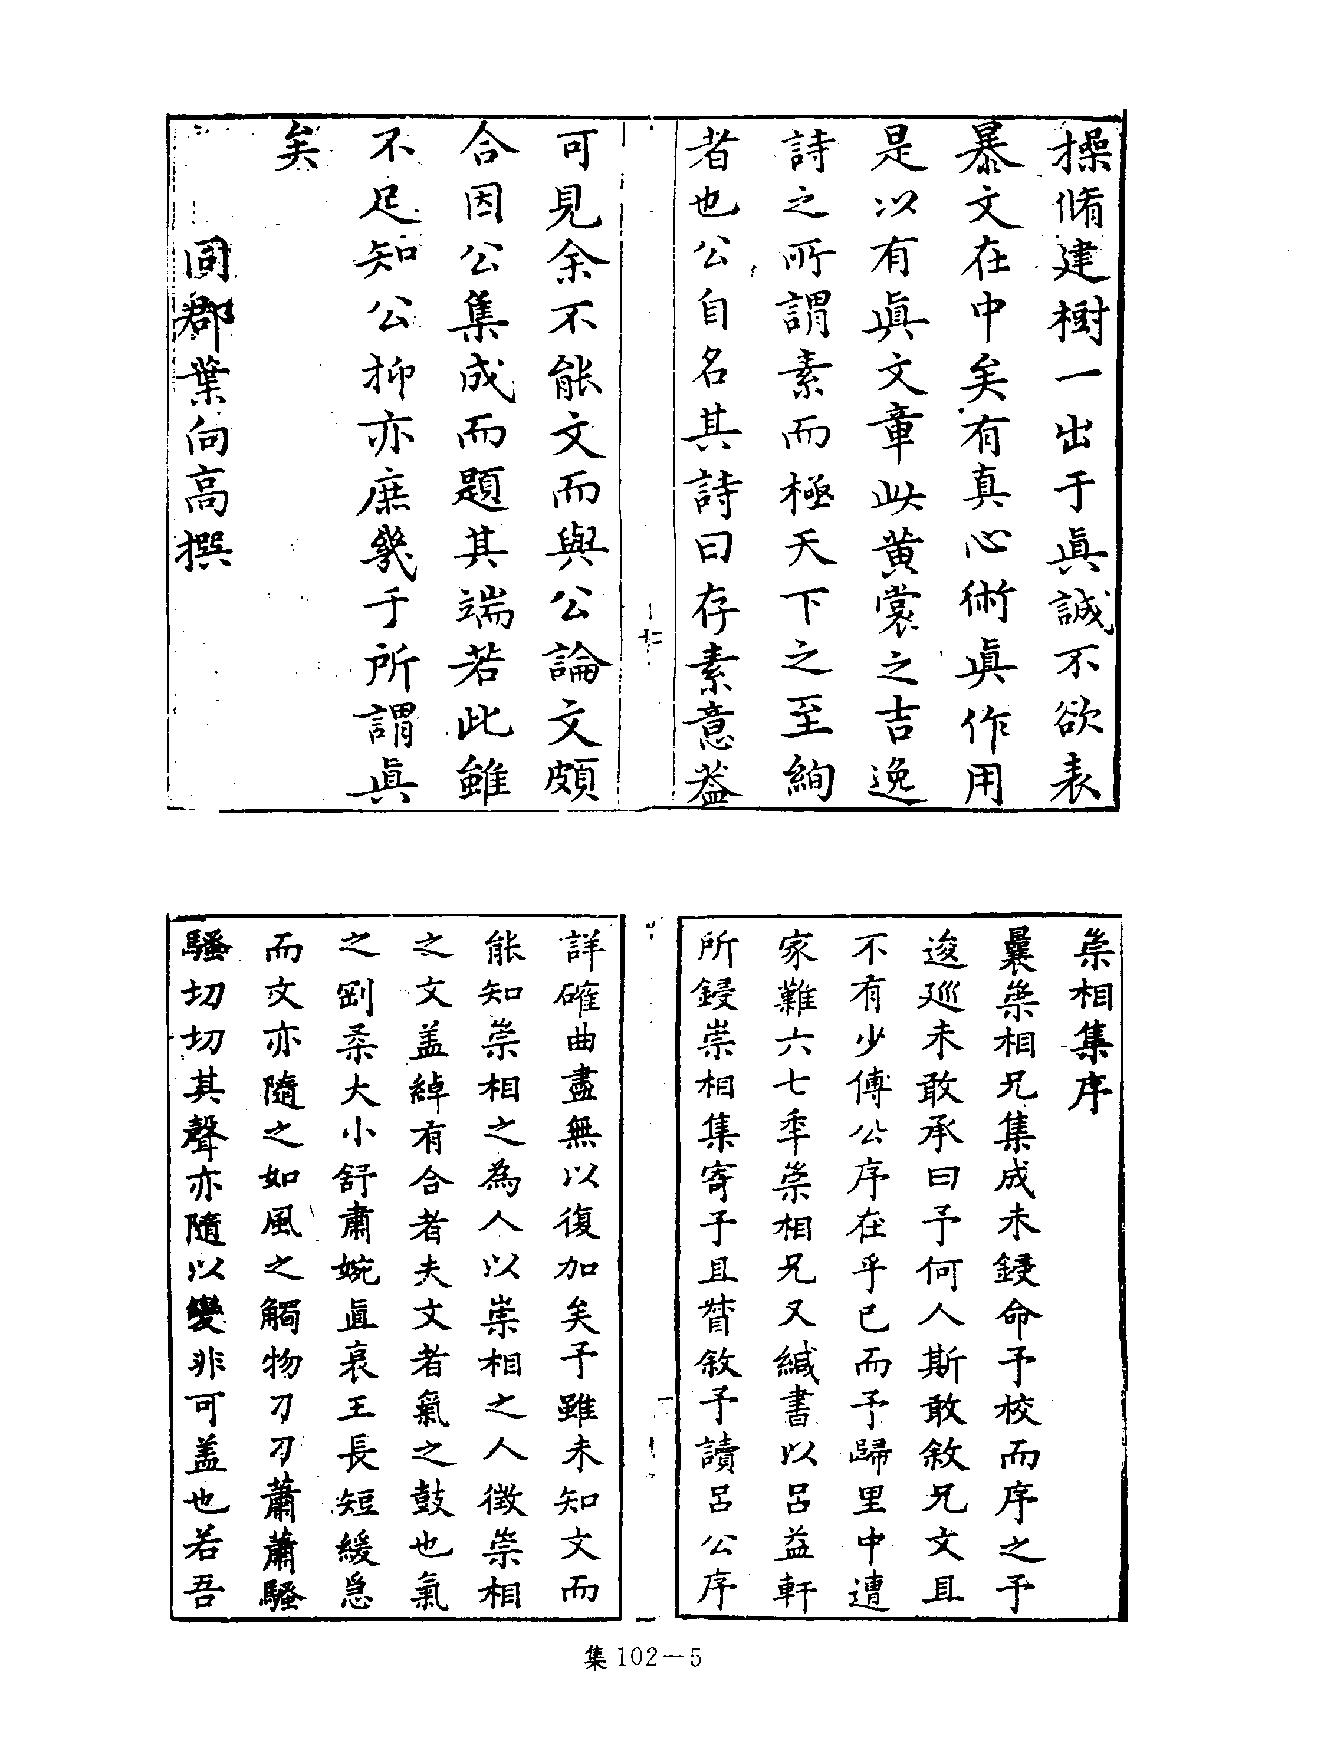 操脩建樹一出于眞誠不欲表
暴文在中矣有真心術眞作用
是以有眞文章此黄裳之吉逸
詩之所謂素而極天下之至絢
者也公自名其詩曰存素意葢
十二
可見余不能文而與公論文頗
合因公集成而題其端若此雖
不足知公抑亦庶幾于所謂眞
矣
同郡葉向高撰
崇相集序
曩崇相兄集成未鋟命予校而序之予
逡廵未敢承曰予何人斯敢敘兄文且
不有少傅公序在乎已而予歸里中遭
家難六七年崇相兄又緘書以呂益軒
所鋟崇相集寄予且督敘予讀呂公序
一
詳確曲盡無以復加矣予雖未知文而
能知崇相之為人以崇相之人徵崇相
之文盖綽有合者夫文者氣之鼓也氣
之剛柔大小舒肅婉直哀王長短緩急
而文亦隨之如風之觸物刁刁蕭蕭騷
騷切切其聲亦隨以變非可盖也若吾
集 102－5